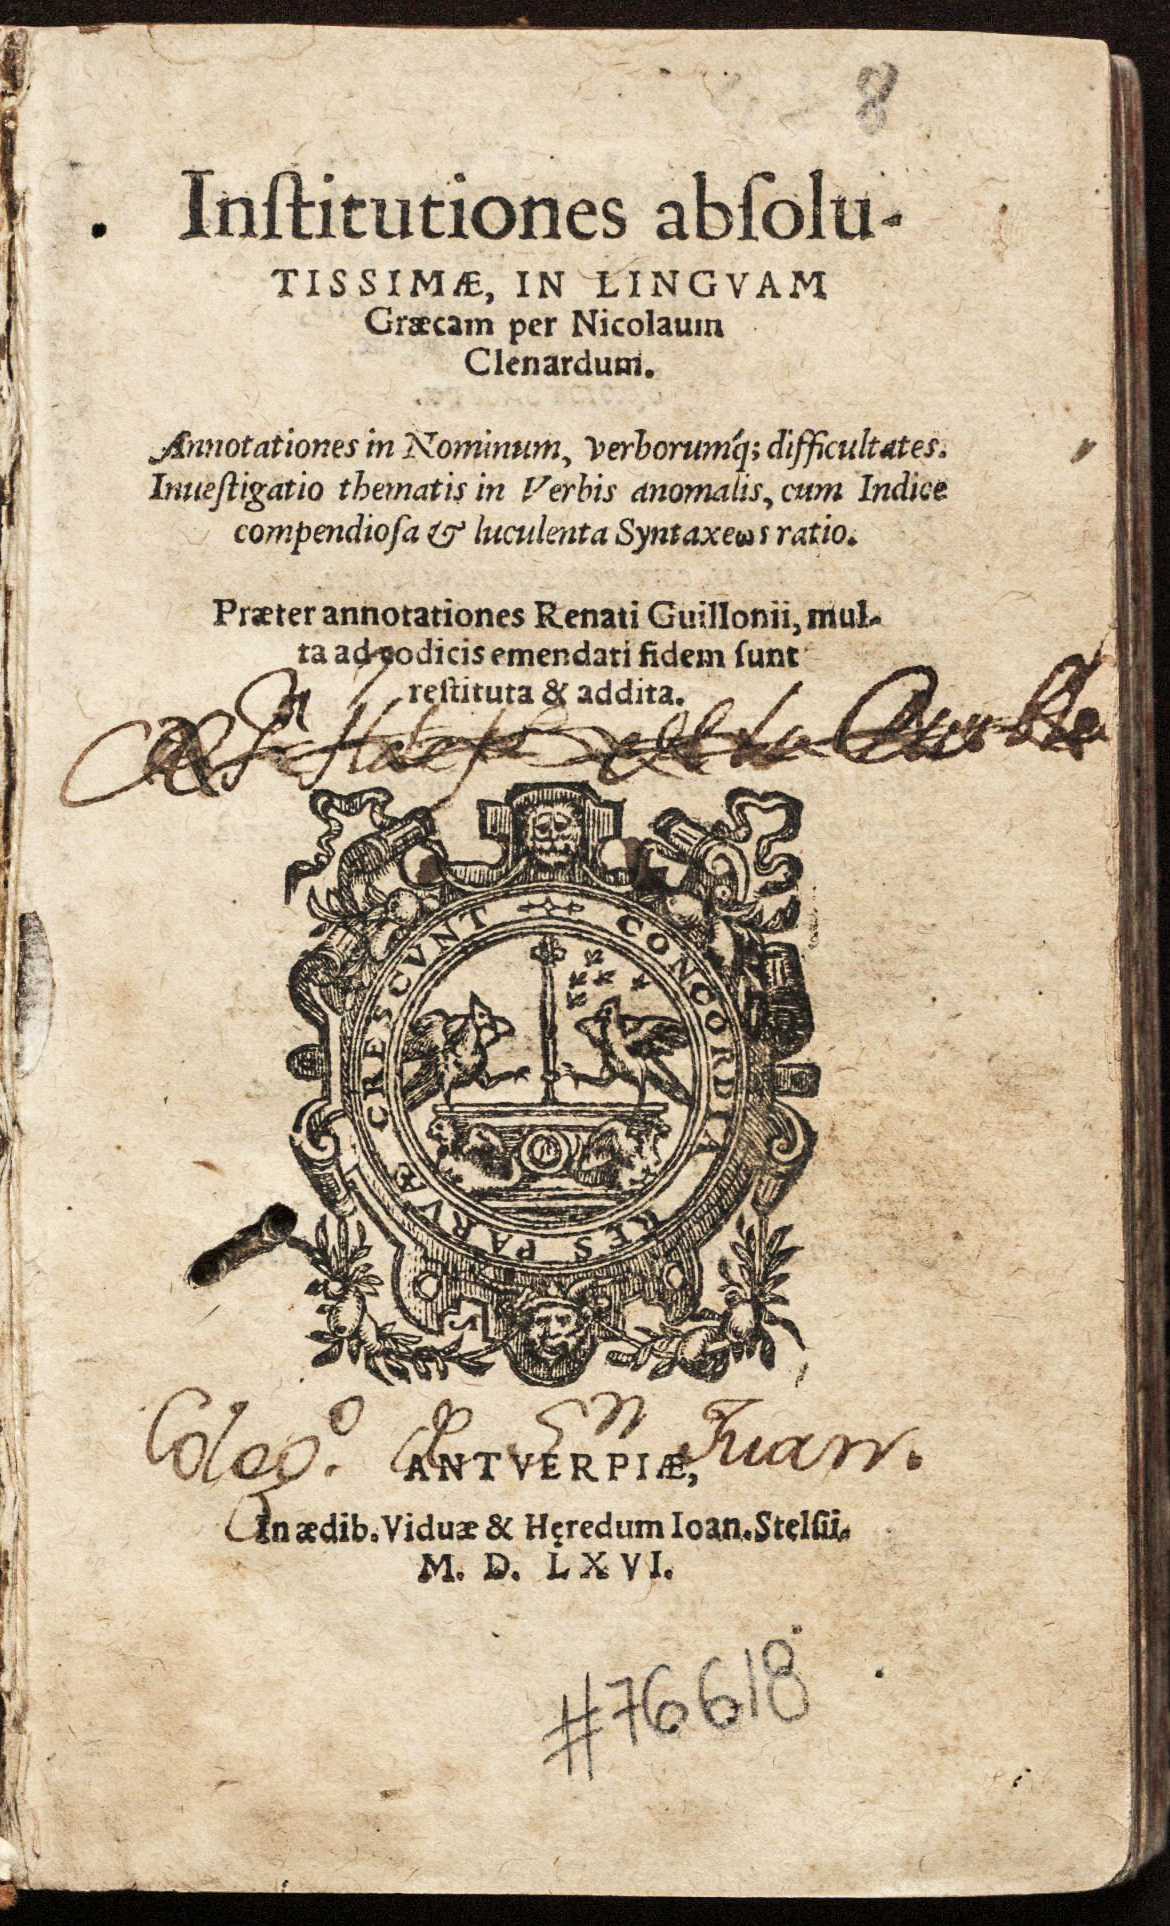 8
Inſtitutiones abſolu-
TISSIMÆ, IN LINGVAM
Græcam per Nicolaum
Clenardum.
Annotationes in Nominum, verborumq́; difficultates.
Inueſtigatio thematis in Verbis anomalis, cum Indice
compendioſa & luculenta Syntaxeωs ratio.
Præter annotationes Renati Guillonii, mul-
ta ad codicis emendati fidem ſunt
reſtituta & addita.
CONCORDIA RES PARVÆ CRESCVNT
Colego. de Sn Juan.
ANTVERPIÆ,
In ædib. Viduæ & Hęredum Ioan. Stelſii.
M. D. LXVI.
#76618